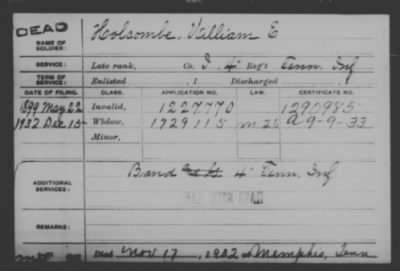 DEAD
NAME OF SOLDIER: Holsombe, William E
SERVICE: Late rank, Co. I, 4" Reg't Tenn. Inf
TERM OF SERVICE: Enlisted , 1 Discharged , 1
DATE OF FILING. CLASS. APPLICATION NO. LAW. CERTIFICATE NO.
1899 May 22 Invalid, 1227770 1290985
1932 Dec 15 Widow, 1729115 A-9-9-33
Minor,
ADDITIONAL SERVICES: Band 4" Tenn. Inf
REMARKS:
Died Nov 17, 1932 Memphis, Tenn